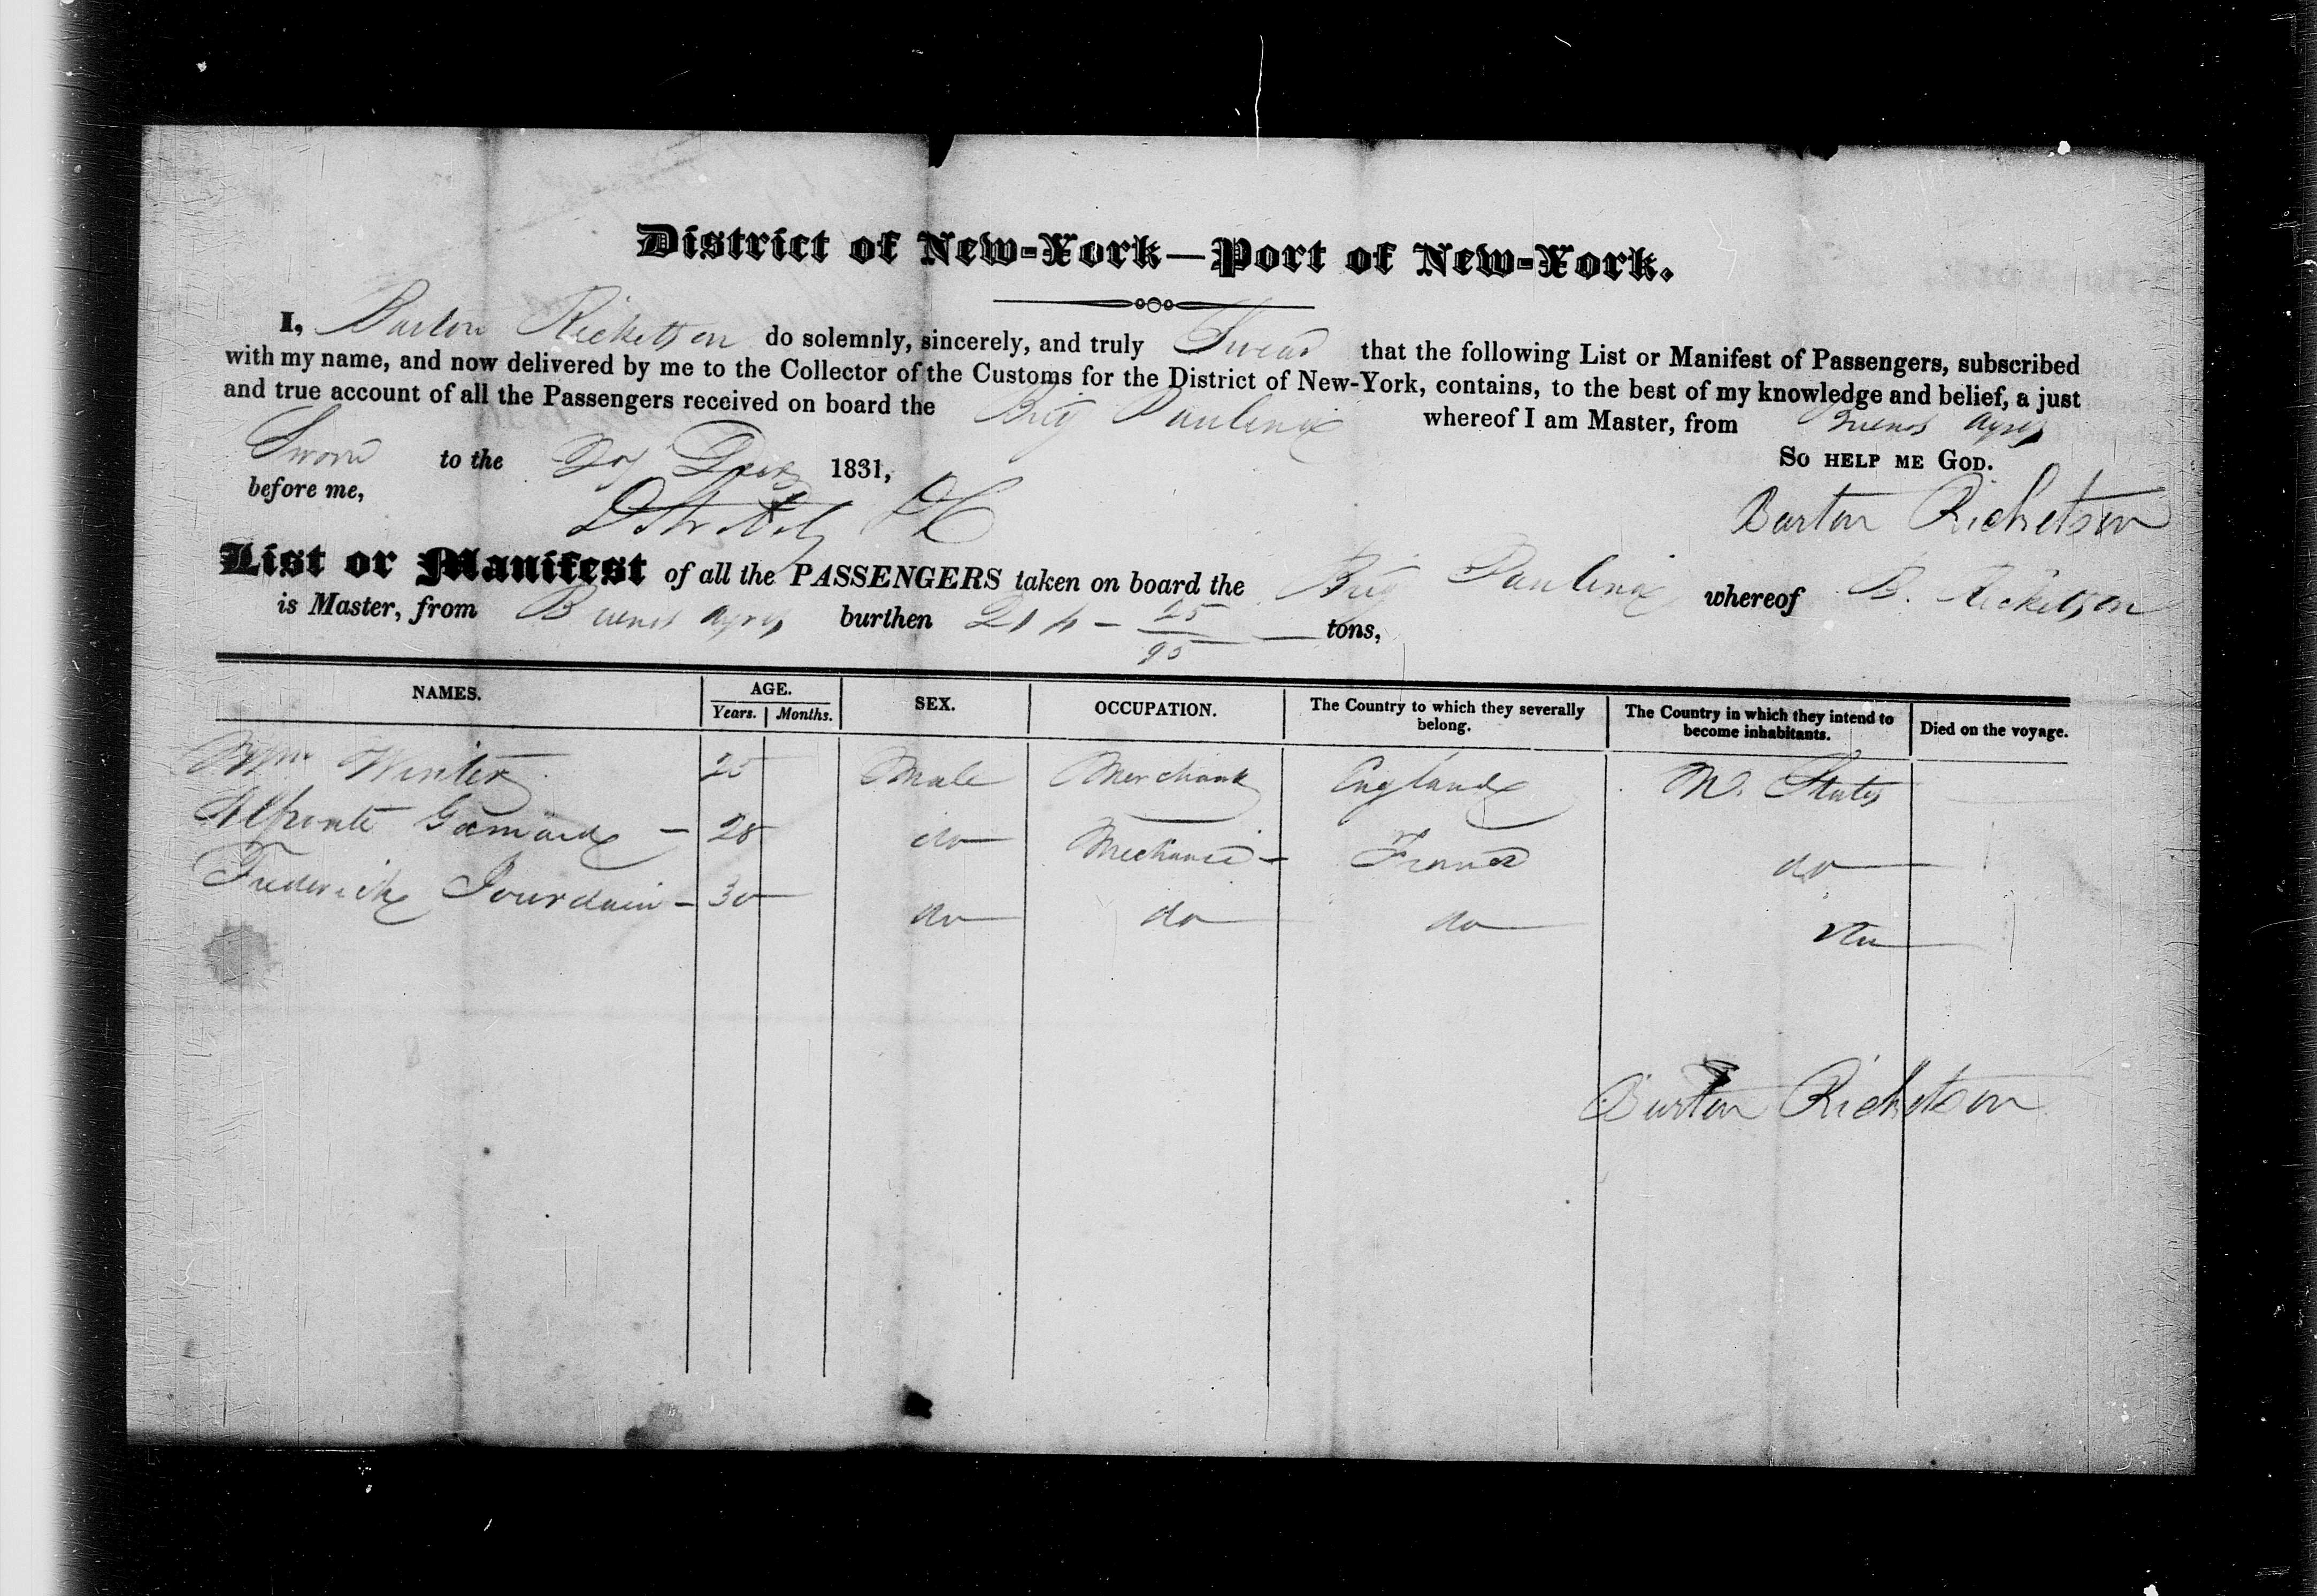 District of New-York—Port of New-York.
I, Barton Ricketson do solemnly, sincerely, and truly Swear that the following List or Manifest of Passengers, subscribed
with my name, and now delivered by me to the Collector of the Customs for the District of New-York, contains, to the best of my knowledge and belief, a just
and true account of all the Passengers received on board the Brig Paulina whereof I am Master, from Buenos Ayres
Sworn to the 1831, So help me God.
before me, Barton Ricketson
List or Manifest of all the PASSENGERS taken on board the Brig Paulina whereof B. Ricketson
is Master, from Buenos Ayres burthen 214 - 25/95 tons,
NAMES. AGE. SEX. OCCUPATION. The Country to which they severally belong. The Country in which they intend to become inhabitants. Died on the voyage.
Years. Months.
Wm Winter 25 Male Merchant England U. States
28 do Mechanic - France do
Frederick Jourdain - 30 do do do do
Barton Ricketson